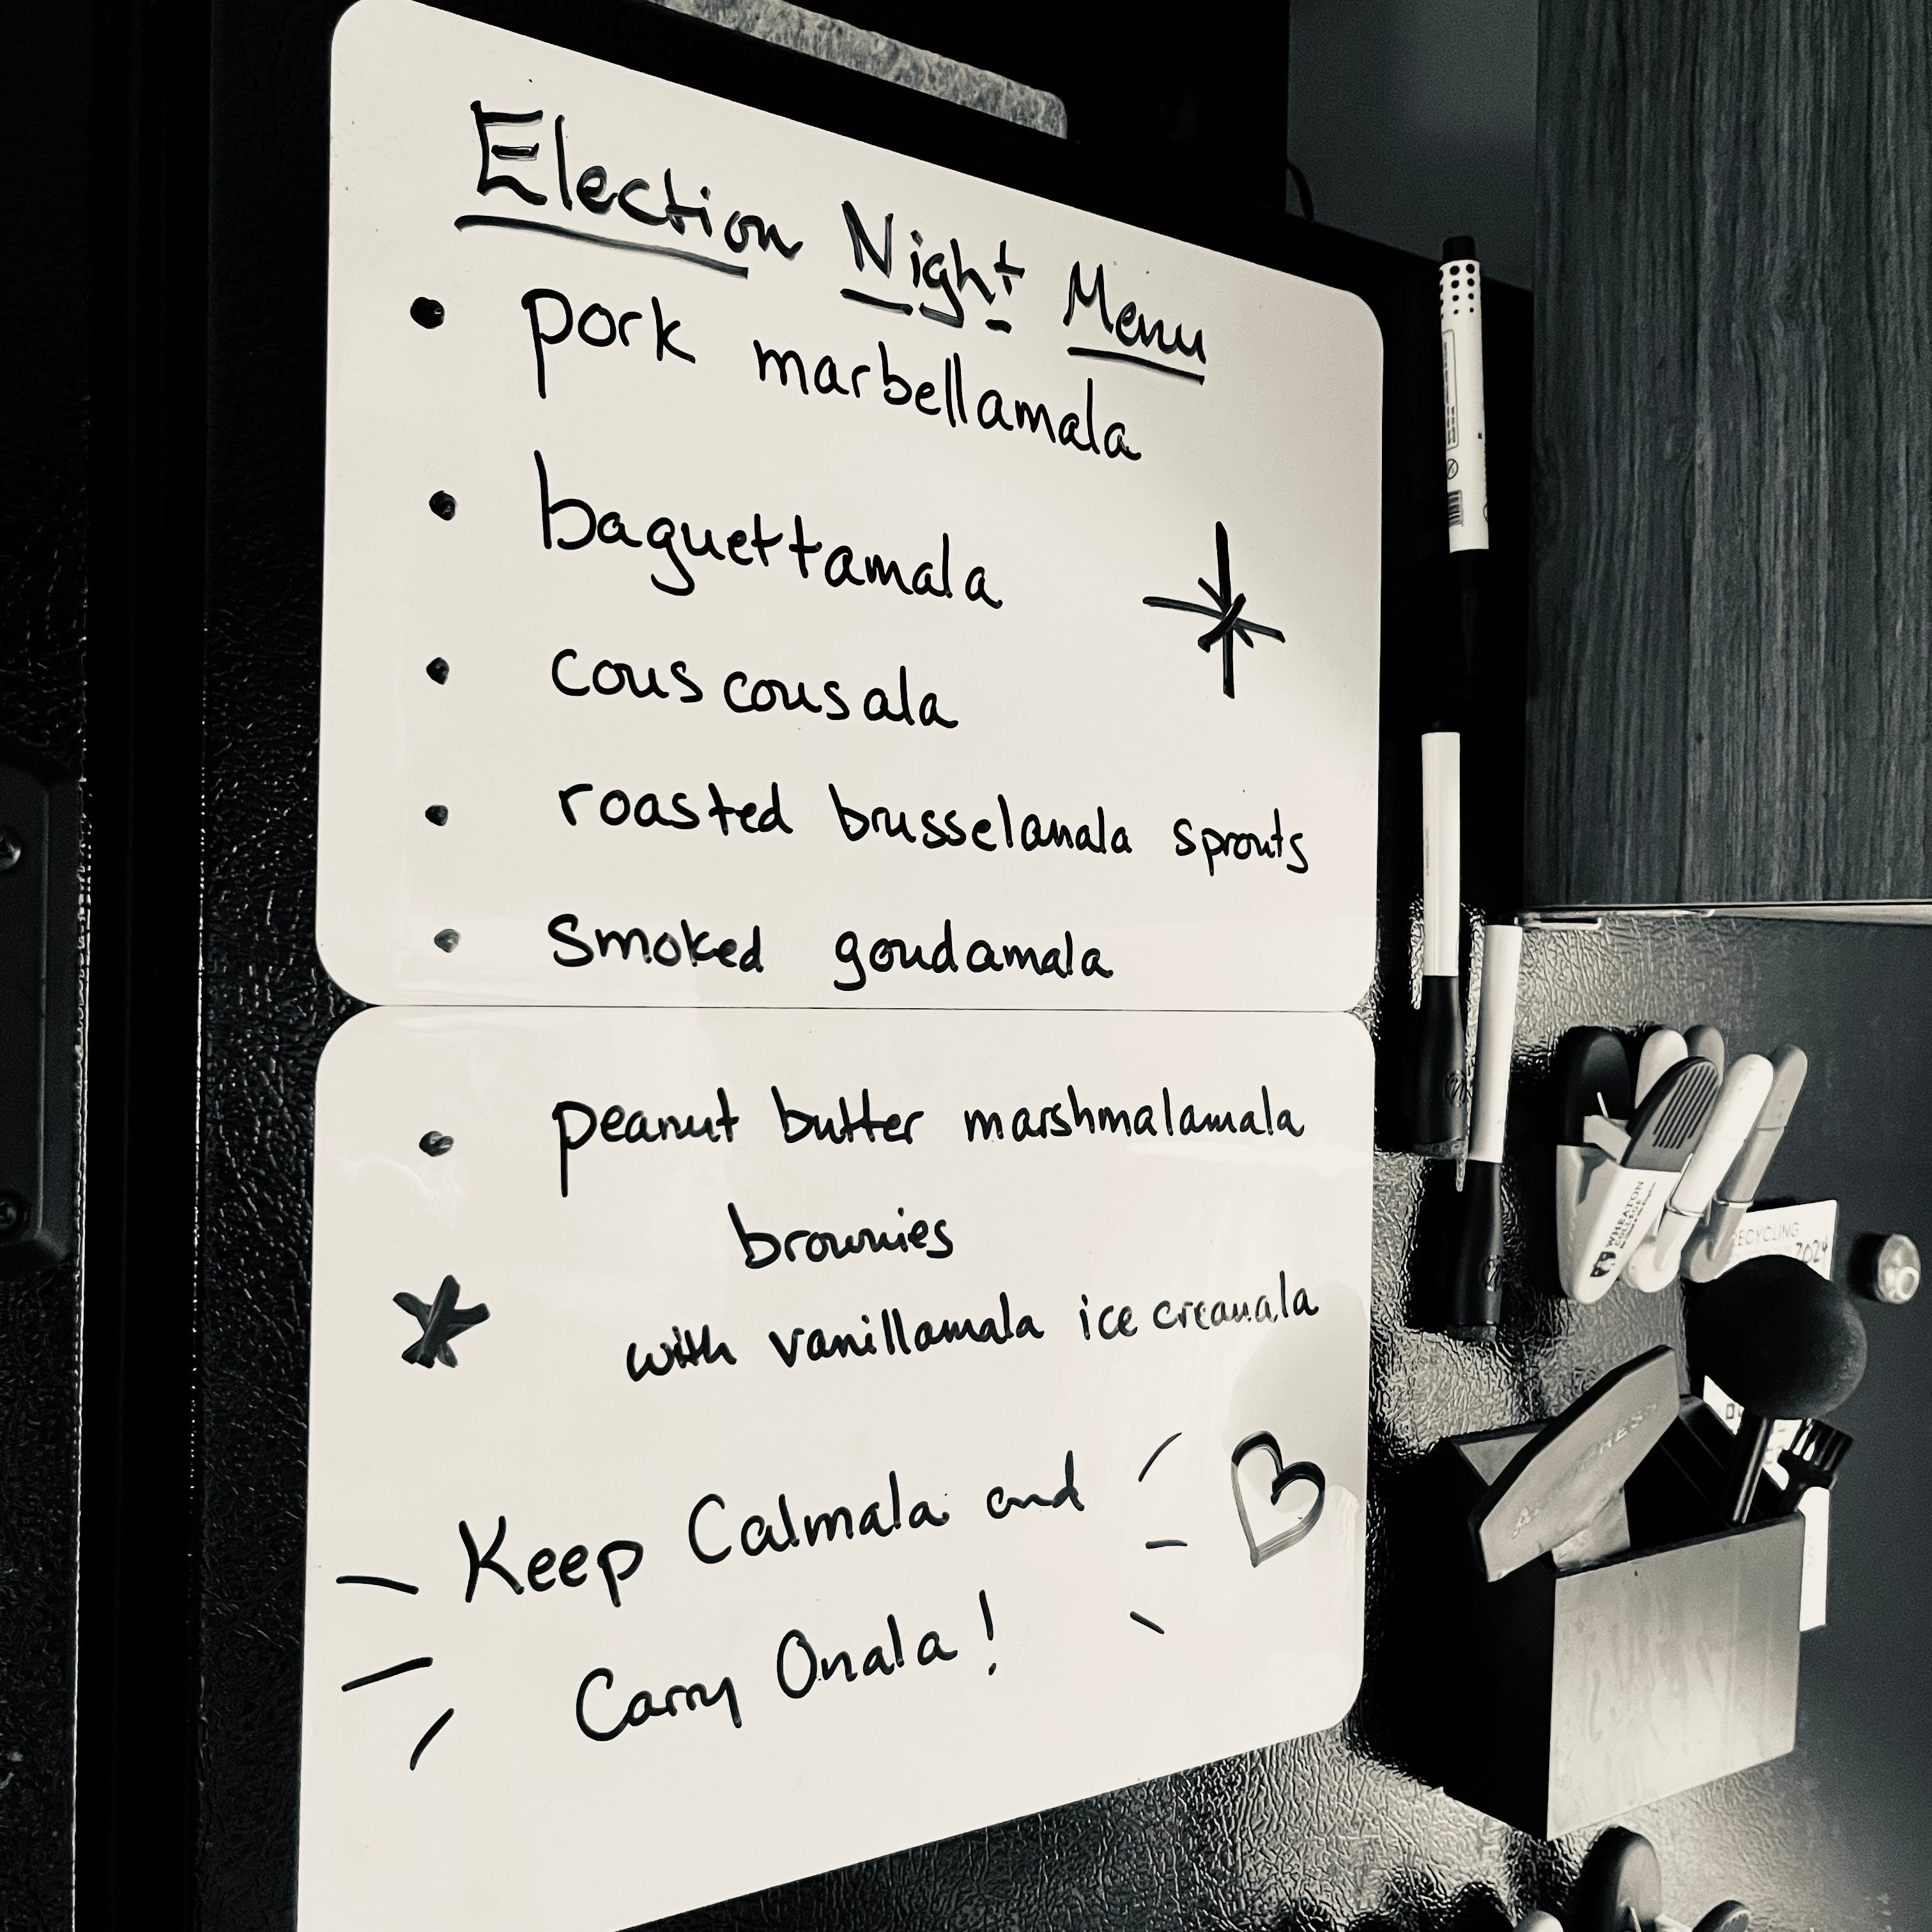 Election Night Menu
• pork marbellamala
• baguettamala
• couscousala
• roasted brusselamala sprouts
• smoked goudamala
• peanut butter marshmalamala
brownies
with vanillamala ice creamala
Keep Calmala and
Carry Onala!
WHEATON
COLLEGE
RECYCLING
2024